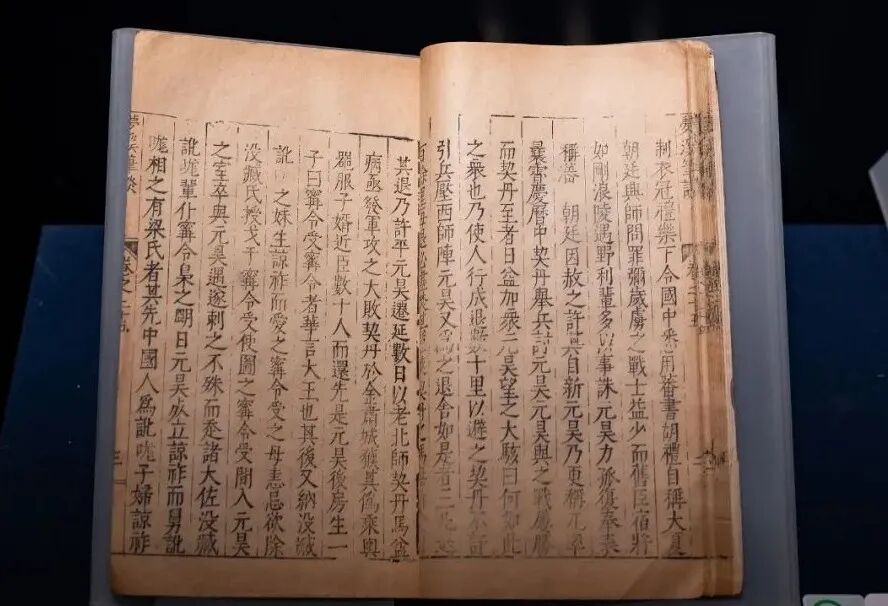 夢溪筆談
制衣冠禮樂下令國中悉用蕃書胡禮自稱大夏
朝廷興師問罪彌歲虜之戰士益少而舊臣宿將
如剛浪㖫遇野利輩多以事誅元昊力孤復奉表
稱藩 朝廷因赦之許其自新元昊乃更稱兀卒
曩霄慶曆中契丹舉兵討元昊元昊與之戰屢勝
而契丹至者日益加衆元昊望之大駭曰何如此
之衆也乃使人行成退數十里以避之契丹不許
引兵壓西師陣元昊又爲之退舍如是者三凡退
其退乃許平元昊遷延數日以老北師契丹馬益
病亟發軍攻之大敗契丹於金肅城獲其僞乘輿
器服子婿近臣數十人而還先是元昊後房生一
子曰甯令受甯令者華言大王也其後又納没臧
訛 之妹生諒祚而愛之甯令受之母恚忌欲除
没臧氏授戈于甯令受使圖之甯令受間入元昊
之室卒與元昊遇遂刺之不殊而走諸大佐没臧
訛哤輩仆甯令梟之明日元昊死立諒祚而舅訛
哤相之有梁氏者其先中國人爲訛哤子婦諒祚
夢溪筆談
卷之二十五
三